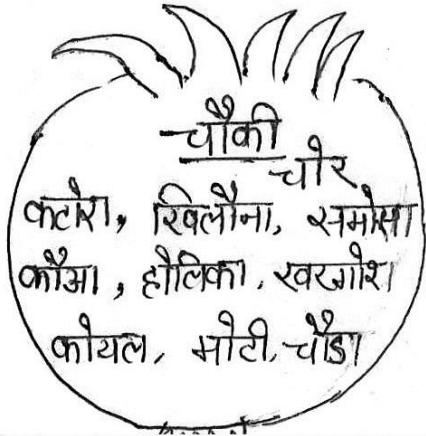 चौकी
चोर
कटोरा, खिलौना, समोसा
कौआ, होलिका, खरगोश
कोयल, मोटी, चौडा